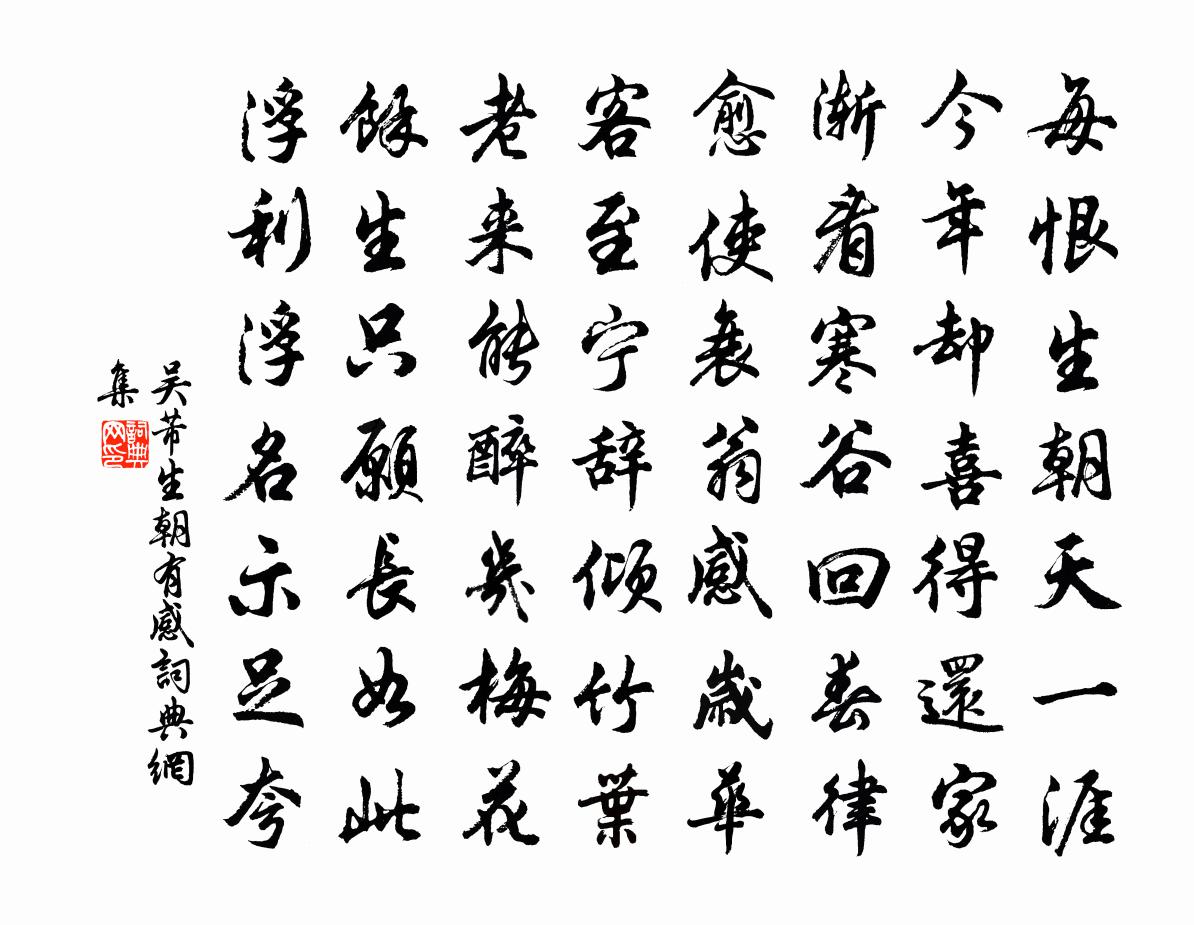 每恨生朝天一涯
今年却喜得還家
渐看寒谷回春律
愈使衰翁感歲華
客至宁辞倾竹葉
老来能醉幾梅花
餘生只願長如此
浮利浮名示足夸
吴芾生朝有感詞典網
集
詞典
网印